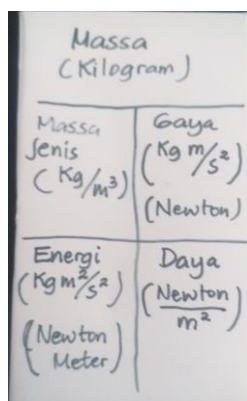 Massa
(Kilogram)
Massa
Jenis
(Kg/m³)
Gaya
(Kg m/s²)
(Newton)
Energi
(Kg m²/s²)
(Newton
Meter)
Daya
(Newton/m²)